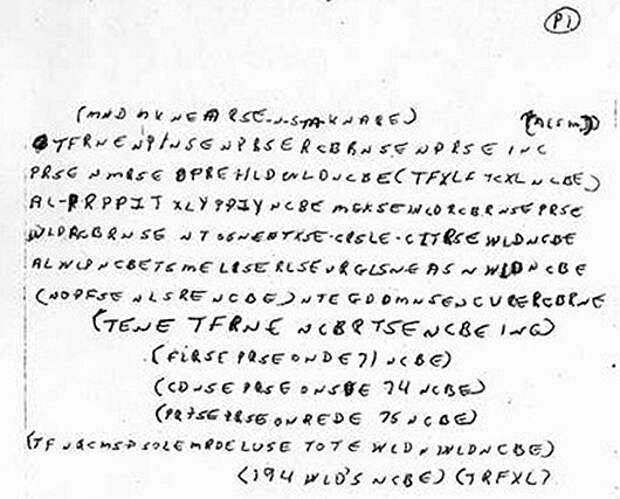 P1
(MND MKNEARSE-N-S-TA-KNARE) (ACSM)
TFRNENPINSENPRSERCBRNSENPRSE INC
PRSE NMRSE OPREHLDWLDNCBE(TFXLF TCXL NCBE)
AL-PRPPIT XLYPPIY NCBE MGKSEWLDRCBRNSEPRSE
WLDRCBRNSE NTOSNENTXSE-CRSLE-CITRSEWLDNCBE
ALWLPNCBETSMELRSERLSEURGLSNEASNWLDNCBE
(NOPFSENLSRENCBE)NTEGDDMNSENCURERCBRNE
(TENE TFRNE NCBRTSENCBE INC)
(FLRSEPRSEONDE71NCBE)
(CDNSEPRSEONSDE74NCBE)
(PRTSEPRSEONREDE75NCBE)
(TFNQCMSPSOLEMRDELUSE TOTE WLDNWLDNCBE)
(194WLD'SNCBE)(TRFXL)